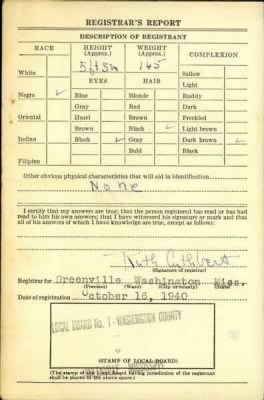 REGISTRAR'S REPORT
DESCRIPTION OF REGISTRANT
RACE HEIGHT (Approx.) WEIGHT (Approx.) COMPLEXION
5ft 5in 145
White Sallow
EYES HAIR Light
Negro ✓ Blue Blonde Ruddy
Gray Red Dark
Oriental Hazel Brown Freckled
Brown Black ✓ Light brown
Indian Black ✓ Gray Dark brown ✓
Bald Black
Filipino
Other obvious physical characteristics that will aid in identification
None
I certify that my answers are true; that the person registered has read or has had
read to him his own answers; that I have witnessed his signature or mark and that
all of his answers of which I have knowledge are true, except as follows:
Ruth Cuthbert
(Signature of registrar)
Registrar for Greenville Washington Miss.
(Precinct) (Ward) (City or county) (State)
Date of registration October 16, 1940
LOCAL BOARD No. 1 - WASHINGTON COUNTY
(STAMP OF LOCAL BOARD)
(The stamp of the Local Board having jurisdiction of the registrant
shall be placed in the above space.)